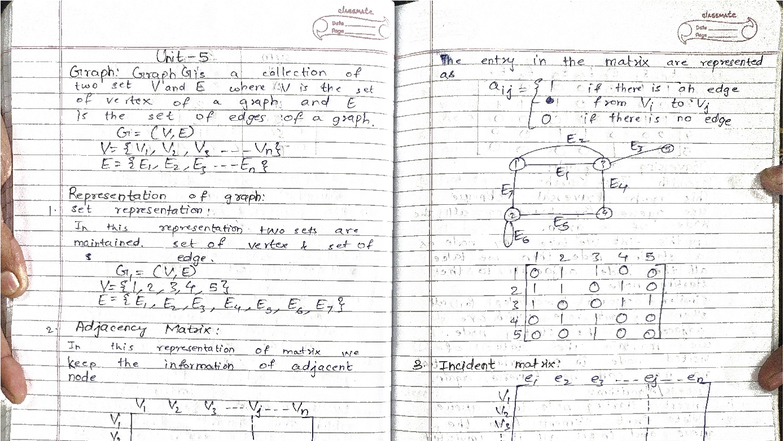 classmate
Date
Page
Unit-5
Graph: Graph G is a collection of
two set V and E where V is the set
of vertex of a graph and E
is the set of edges of a graph.
G = (V,E)
V = {V1, V2, V3 ---- Vn}
E = {E1, E2, E3 ---- En}
Representation of graph:
1. set representation:
In this representation two sets are
maintained. set of vertex & set of
edge.
G1 = (V,E)
V = {1, 2, 3, 4, 5}
E = {E1, E2, E3, E4, E5, E6, E7}
2. Adjacency Matrix:
In this representation of matrix we
keep the information of adjacent
node
V1 V2 V3 --- Vj --- Vn
V1
classmate
Date
Page
The entry in the matrix are represented
as
aij = { 1 if there is an edge
from Vi to Vj
0 if there is no edge
E2
E3
1 3 5
E1
E7 E4
2 4
E5
E6
1 2 3 4 5
1 0 1 1 0 0
2 1 1 0 1 0
3 1 0 0 1 1
4 0 1 1 0 0
5 0 0 1 0 0
3. Incident matrix:
e1 e2 e3 ---- ej --- en
V1
V2
V3